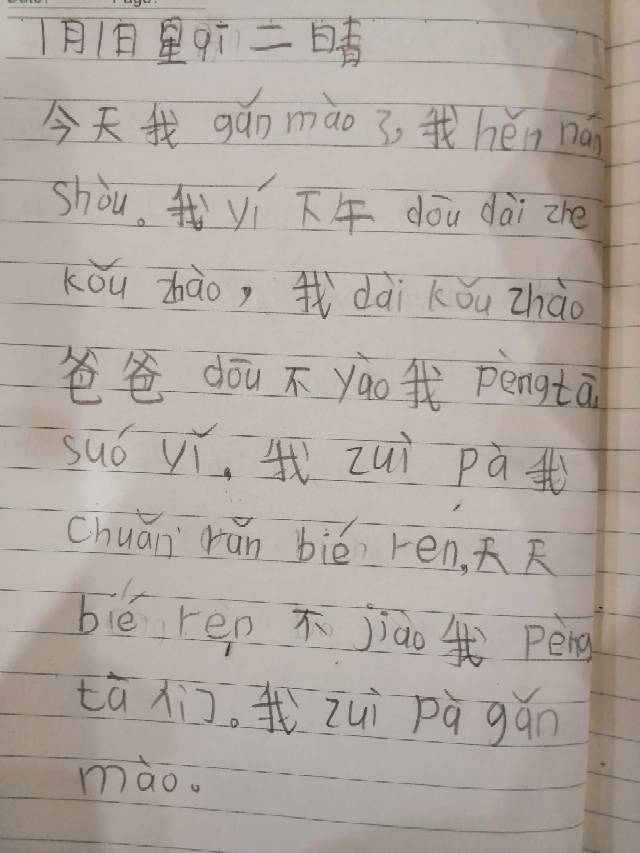 1月1日星qī二 晴
今天我 gǎn mào 了,我 hěn nán
shòu。我 yí 下午 dōu dài zhe
kǒu zhào，我 dài kǒu zhào
爸爸 dōu 不 yào 我 pèng tā
suó yǐ，我 zuì pà 我
chuǎn rǎn bié rén,天天
bié rén 不 jiào 我 pèng
tā 们。我 zuì pà gǎn
mào。